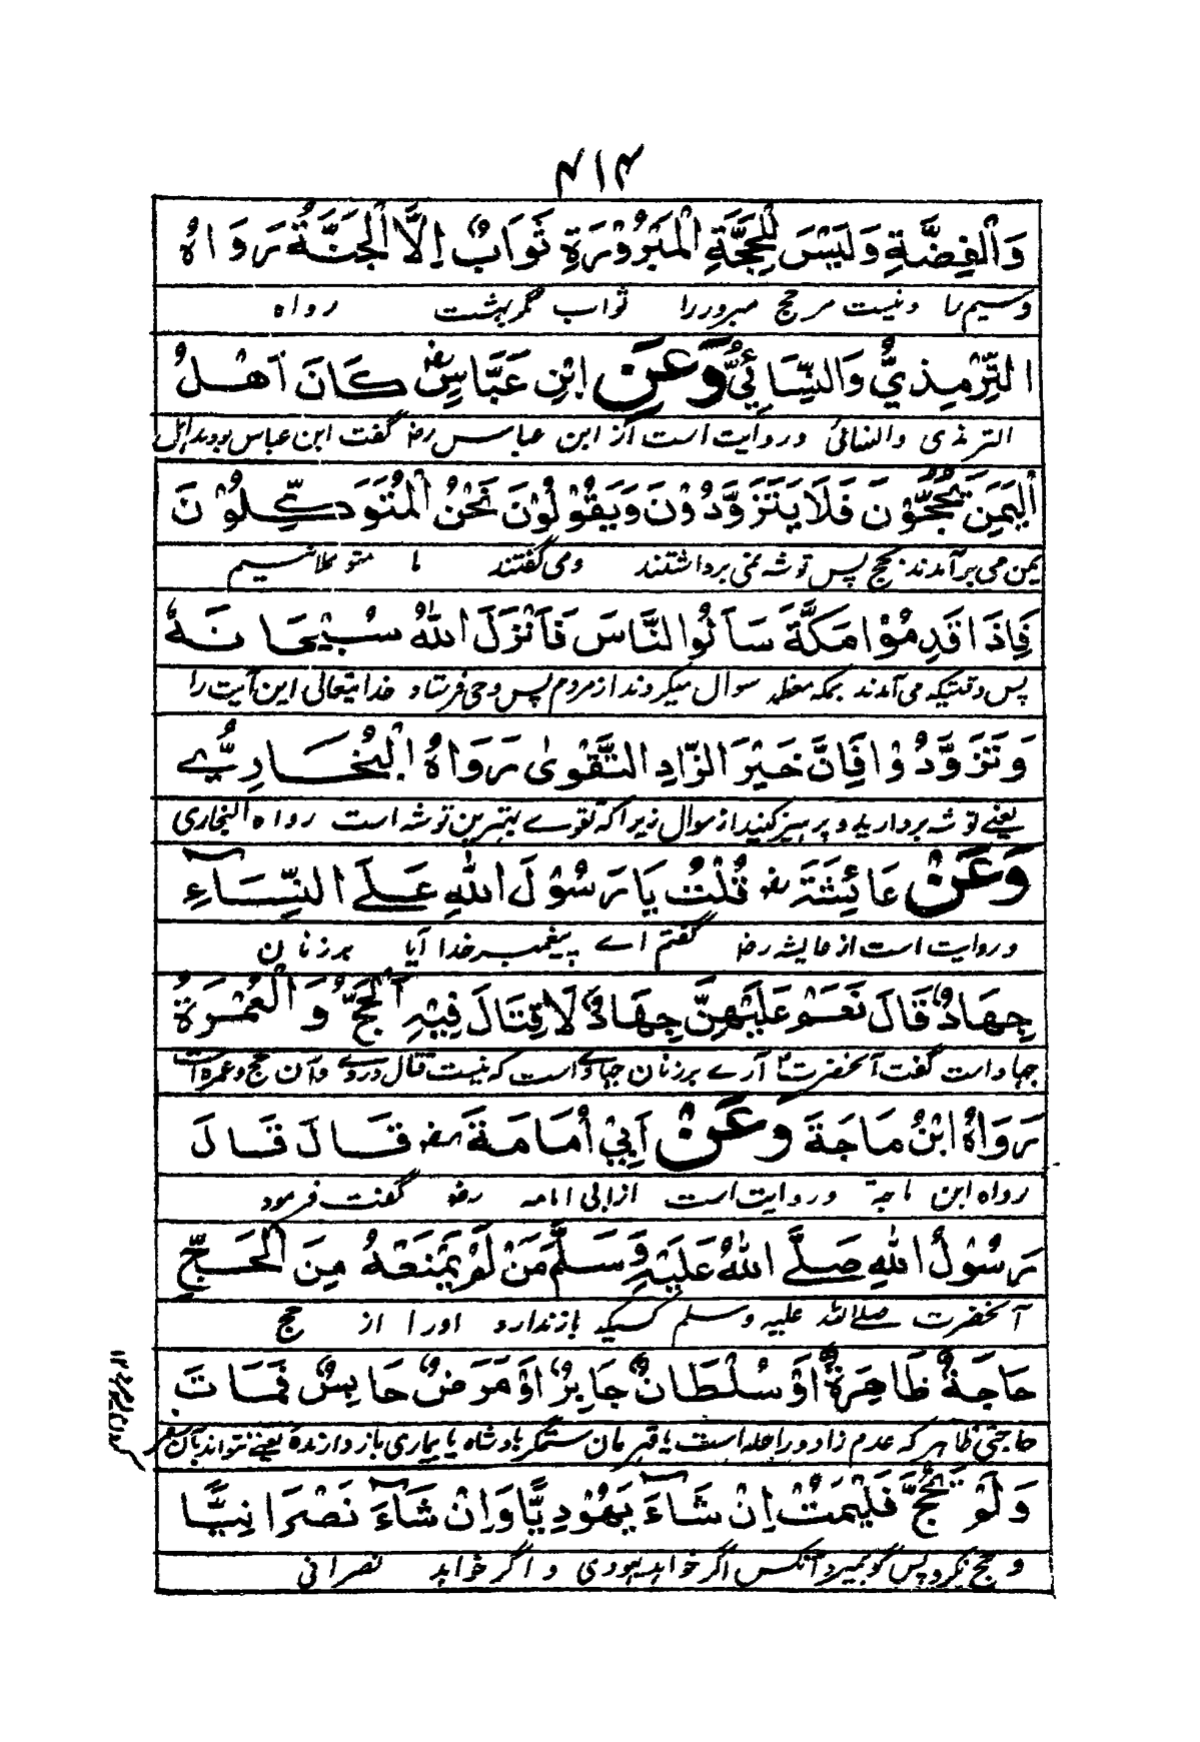 ۴۱۴
وَالْفِضَّةِ وَلَيْسَ لِلْحَجَّةِ الْمَبْرُوْرَةِ ثَوَابٌ اِلَّا الْجَنَّةُ رَوَاهُ
وسیم را ونیست مر حج مبرور را ثواب مگر بهشت رواه
التِّرْمِذِيُّ وَالنِّسَائِيُّ وَعَنِ ابْنِ عَبَّاسٍ رض كَانَ اَهْلُ
الترمذی والنسائی و روایت است از ابن عباس رض گفت ابن عباس بودند اهل
الْيَمَنِ يَحُجُّوْنَ فَلَا يَتَزَوَّدُوْنَ وَيَقُوْلُوْنَ نَحْنُ الْمُتَوَكِّلُوْنَ
یمن می برآمدند بحج پس توشه نمی برداشتند ومی گفتند ما متوکلانیم
فَاِذَا قَدِمُوْا مَكَّةَ سَاَلُوا النَّاسَ فَاَنْزَلَ اللهُ سُبْحَانَهُ
پس وقتیکه می آمدند بمکه معظمه سوال میکردند از مردم پس وحی فرستاد خدایتعالی این آیت را
وَتَزَوَّدُوْا فَاِنَّ خَيْرَ الزَّادِ التَّقْوٰى رَوَاهُ الْبُخَارِيُّ
یعنے توشه بردارید و پرهیز کنید از سوال زیرا که تقوے بهترین توشه است رواه البخاری
وَعَنْ عَائِشَةَ رض قُلْتُ يَا رَسُوْلَ اللهِ عَلَى النِّسَآءِ
و روایت است از عایشه رض گفتم اے پیغمبر خدا آیا بر زنان
جِهَادٌ قَالَ نَعَمْ عَلَيْهِنَّ جِهَادٌ لَا قِتَالَ فِيْهِ اَلْحَجُّ وَالْعُمْرَةُ
جهاد است گفت آنحضرت آرے بر زنان جهادے است که نیست قتال دروے و آن حج و عمره است
رَوَاهُ ابْنُ مَاجَةَ وَعَنْ اَبِيْ اُمَامَةَ رض قَالَ قَالَ
رواه ابن ماجة و روایت است از ابی امامه رض گفت فرمود
رَسُوْلُ اللهِ صَلَّى اللهُ عَلَيْهِ وَسَلَّمَ مَنْ لَمْ يَمْنَعْهُ مِنَ الْحَجِّ
آنحضرت صلے الله علیه وسلم کسیکه باز ندارد او را از حج
حَاجَةٌ ظَاهِرَةٌ اَوْ سُلْطَانٌ جَابِرٌ اَوْ مَرَضٌ حَابِسٌ فَمَاتَ
حاجتی ظاهر که عدم زاد و راحله است یا قهرمان ستمگر بادشاه یا بیماری باز دارنده یعنے نتواند بآن سفر
وَلَمْ يَحُجَّ فَلْيَمُتْ اِنْ شَآءَ يَهُوْدِيًّا وَاِنْ شَآءَ نَصْرَانِيًّا
و حج نکرد پس گو بمیرد آنکس اگر خواهد یهودی و اگر خواهد نصرانی